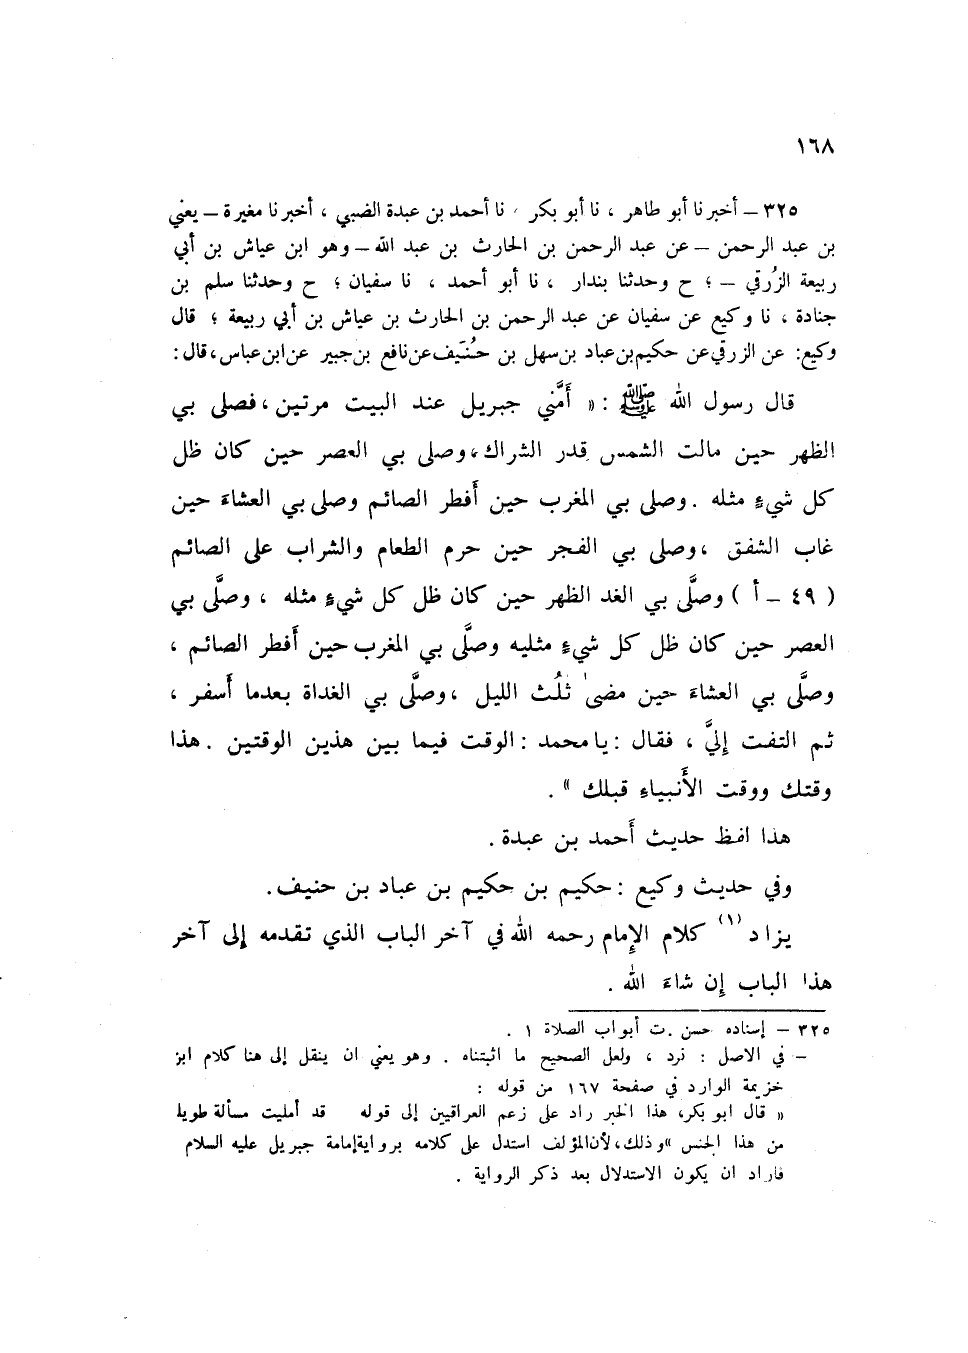 ١٦٨
٣٢٥ – أخبرنا أبو طاهر ، نا أبو بكر ، نا أحمد بن عبدة الضبي ، أخبرنا مغيرة – يعني
بن عبد الرحمن – عن عبد الرحمن بن الحارث بن عبد الله – وهو ابن عياش بن أبي
ربيعة الزُرقي – ؛ ح وحدثنا بندار ، نا أبو أحمد ، نا سفيان ؛ ح وحدثنا سلم بن
جنادة ، نا وكيع عن سفيان عن عبد الرحمن بن الحارث بن عياش بن أبي ربيعة ؛ قال
وكيع: عن الزرقي عن حكيم بن عباد بن سهل بن حُنَيف عن نافع بن جبير عن ابن عباس، قال :
قال رسول الله ﷺ : « أَمَّني جبريل عند البيت مرتين ، فصلى بي
الظهر حين مالت الشمس قدر الشراك ، وصلى بي العصر حين كان ظل
كل شيءٍ مثله . وصلى بي المغرب حين أَفطر الصائم وصلى بي العشاءَ حين
غاب الشفق ، وصلى بي الفجر حين حرم الطعام والشراب على الصائم
( ٤٩ – أ ) وصلَّى بي الغد الظهر حين كان ظل كل شيءٍ مثله ، وصلَّى بي
العصر حين كان ظل كل شيءٍ مثليه وصلَّى بي المغرب حين أَفطر الصائم ،
وصلَّى بي العشاءَ حين مضىٰ ثلُث الليل ، وصلَّى بي الغداة بعدما أَسفر ،
ثم التفت إليَّ ، فقال : يا محمد : الوقت فيما بين هذين الوقتين . هذا
وقتك ووقت الأَنبياءِ قبلك » .
هذا افظ حديث أَحمد بن عبدة .
وفي حديث وكيع : حكيم بن حكيم بن عباد بن حنيف .
يزاد (١) كلام الإمام رحمه الله في آخر الباب الذي تقدمه إلى آخر
هذا الباب إن شاءَ الله .
٣٢٥ – إسناده حسن . ت أبواب الصلاة ١ .
– في الاصل : نرد ، ولعل الصحيح ما اثبتناه . وهو يعني ان ينقل إلى هنا كلام ابز
خزيمة الوارد في صفحة ١٦٧ من قوله :
« قال ابو بكر، هذا الخبر راد على زعم العراقيين إلى قوله قد أمليت مسألة طويلة
من هذا الجنس » وذلك، لأن المؤلف استدل على كلامه برواية إمامة جبريل عليه السلام
فاراد ان يكون الاستدلال بعد ذكر الرواية .